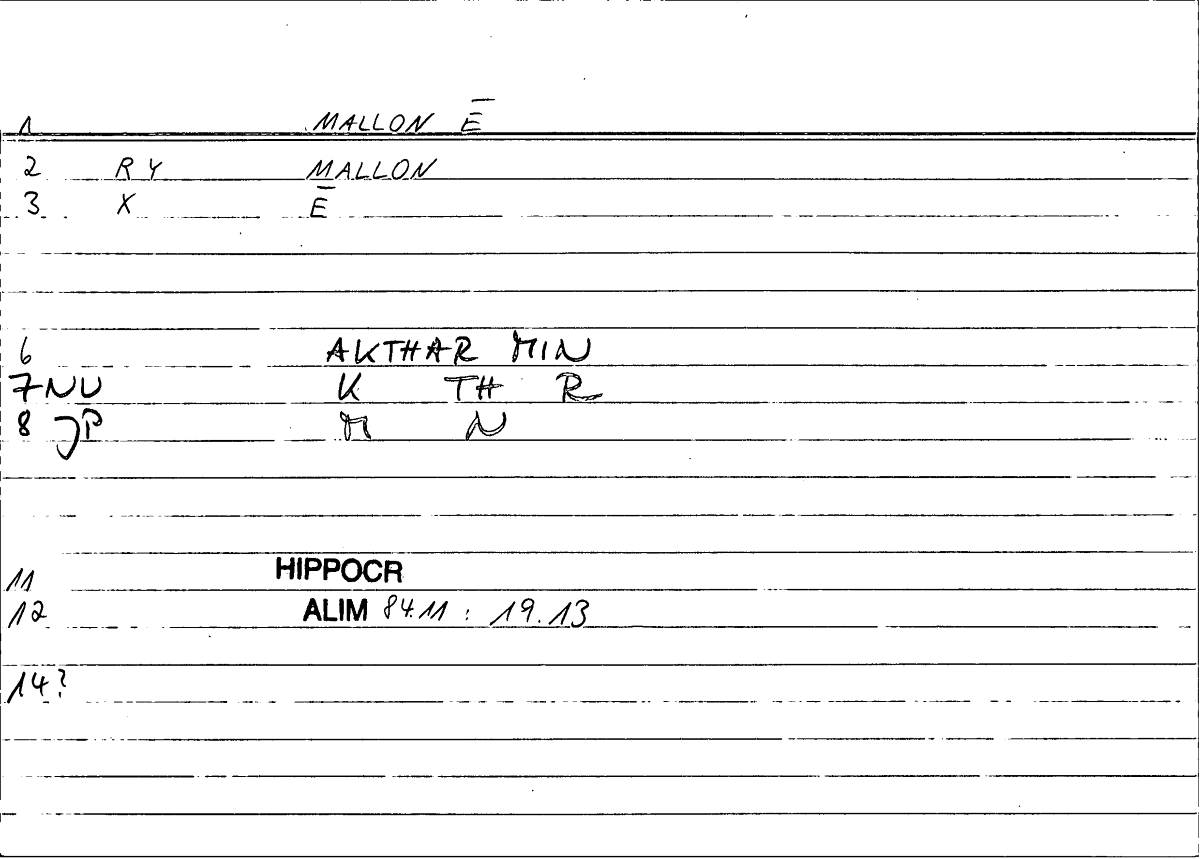 1 MALLON Ē
2 RY MALLON
3 X Ē
6 AKTHAR MIN
7 NU K TH R
8 JP M N
11 HIPPOCR
12 ALIM 84.11 : 19.13
14?